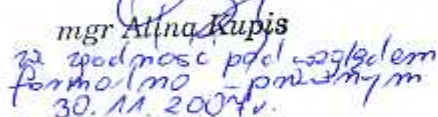 mgr Alina Kupis
za zgodność pod względem
formalno - prawnym
30. 11. 2007r.